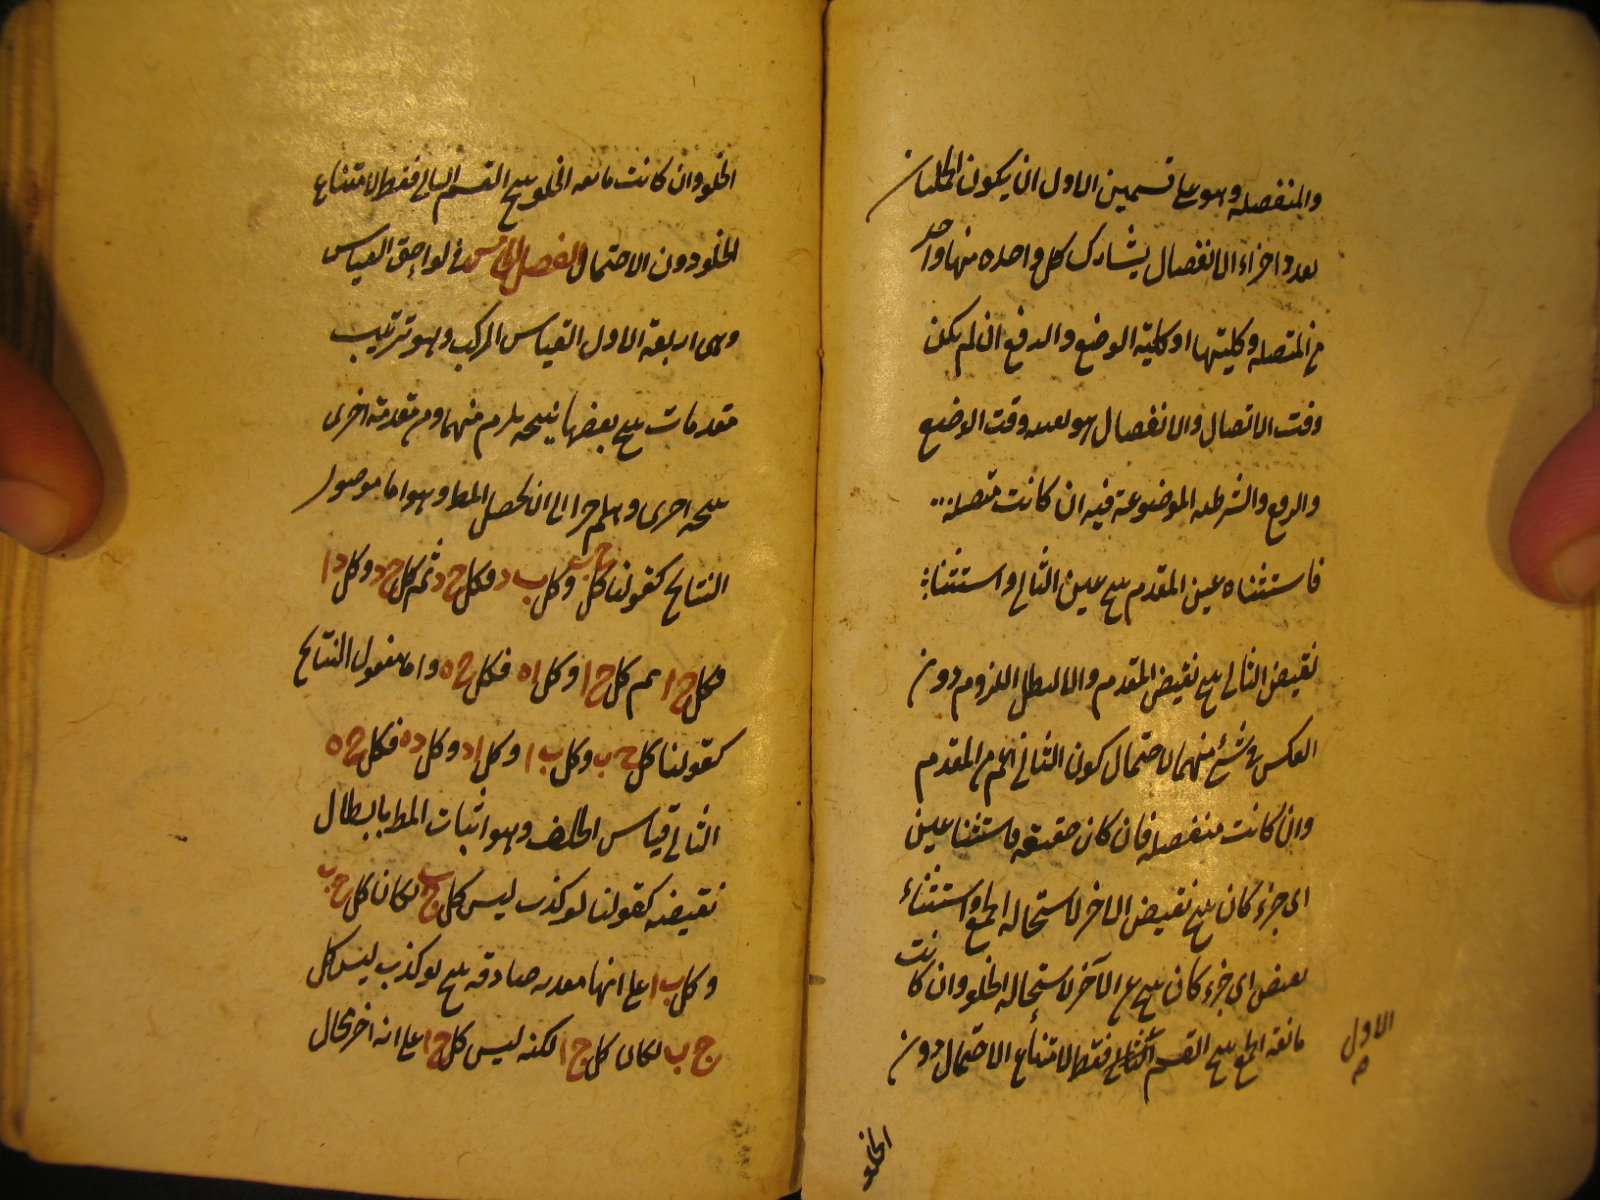 والمنفصله وهو على قسمين الاول ان يكون الحمليات
بعدد اجزاء الانفصال يشارك كل واحده منها واحد
من المتصله وكليتها او كلية الوضع والرفع ان لم يكن
وقت الاتصال والانفصال هو بعينه وقت الوضع
والرفع والشرطيه الموضوعة فيه ان كانت متصله
فاستثناء عين المقدم ينتج عين التالي واستثناء
نقيض التالي ينتج نقيض المقدم والا لبطل اللزوم دون
العكس في شئ منهما لاحتمال كون التالي اعم من المقدم
وان كانت منفصله فان كان حقيقيه فاستثناء عين
اى جزء كان ينتج نقيض الاخر لاستحاله الجمع واستثناء
نقيض اى جزء كان ينتج عين الآخر لاستحاله الخلو وان كانت
مانعه الجمع ينتج القسم فقط لامتناع الاحتمال دون
الاول
الخلو
الخلو وان كانت مانعه الخلو ينتج القسم الثاني فقط لامتناع
الخلو دون الاحتمال الفصل الخامس في لواحق القياس
وهى اربعة الاول القياس المركب وهو ترتيب
مقدمات ينتج بعضها نتيجه يلزم منهما ومن مقدمة اخرى
نتيجه اخرى وهلم جرا الى ان يحصل المط وهو اما موصول
النتائج كقولنا كل ج ب وكل ب د فكل ج د ثم كل ج د وكل د ا
فكل ج ا ثم كل ج ا وكل ا ه فكل ج ه واما مفصول النتائج
كقولنا كل ج ب وكل ب ا وكل ا د وكل د ه فكل ج ه
الثاني قياس الخلف وهو اثبات المط بابطال
نقيضه كقولنا لو كذب ليس كل ج ب لكان كل ج ب
وكل ب ا على انها مقدمه صادقه ينتج لو كذب ليس كل
ج ب لكان كل ج ا لكنه ليس كل ج ا على انه امر محال